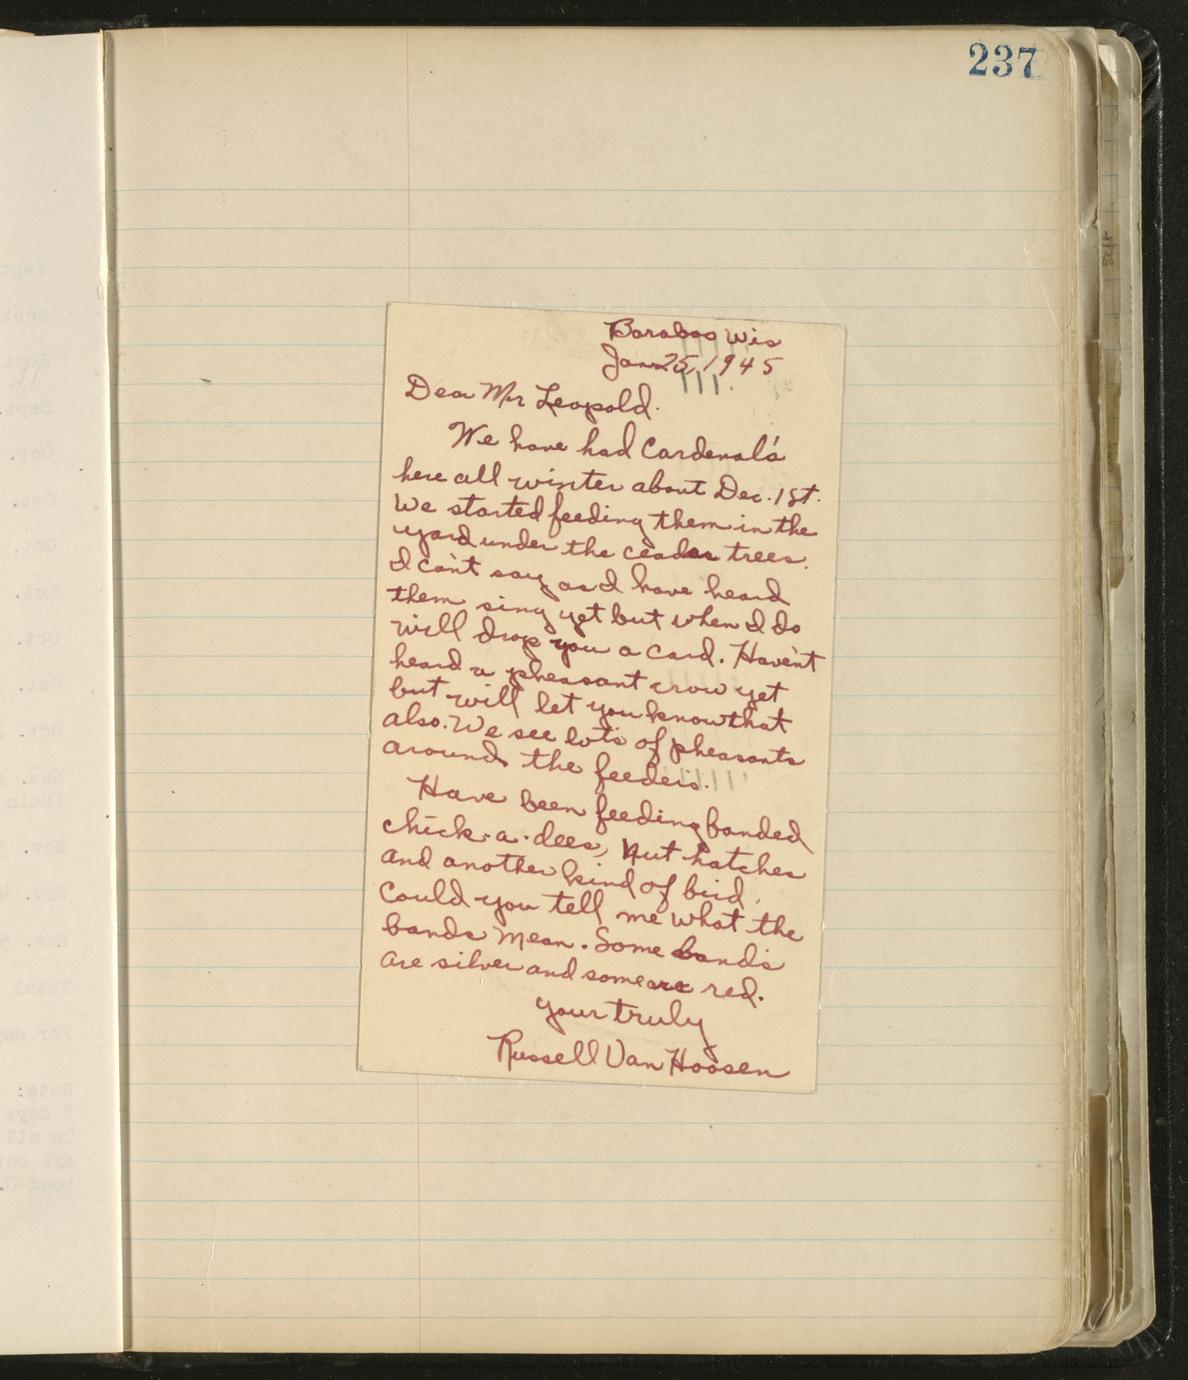 237
Baraboo Wis
Jan 25, 1945
Dear Mr Leopold.
We have had Cardenal's
here all winter about Dec. 1st.
We started feeding them in the
yard under the ceader trees.
I can't say as I have heard
them sing yet but when I do
will drop you a card. Haven't
heard a pheasant crow yet
but will let you know that
also. We see lots of pheasants
around the feeders.
Have been feeding banded
chick-a-dees, Nut hatches
and another kind of bird.
Could you tell me what the
bands mean. Some bands
are silver and some are red.
Your truly
Russell Van Hoosen